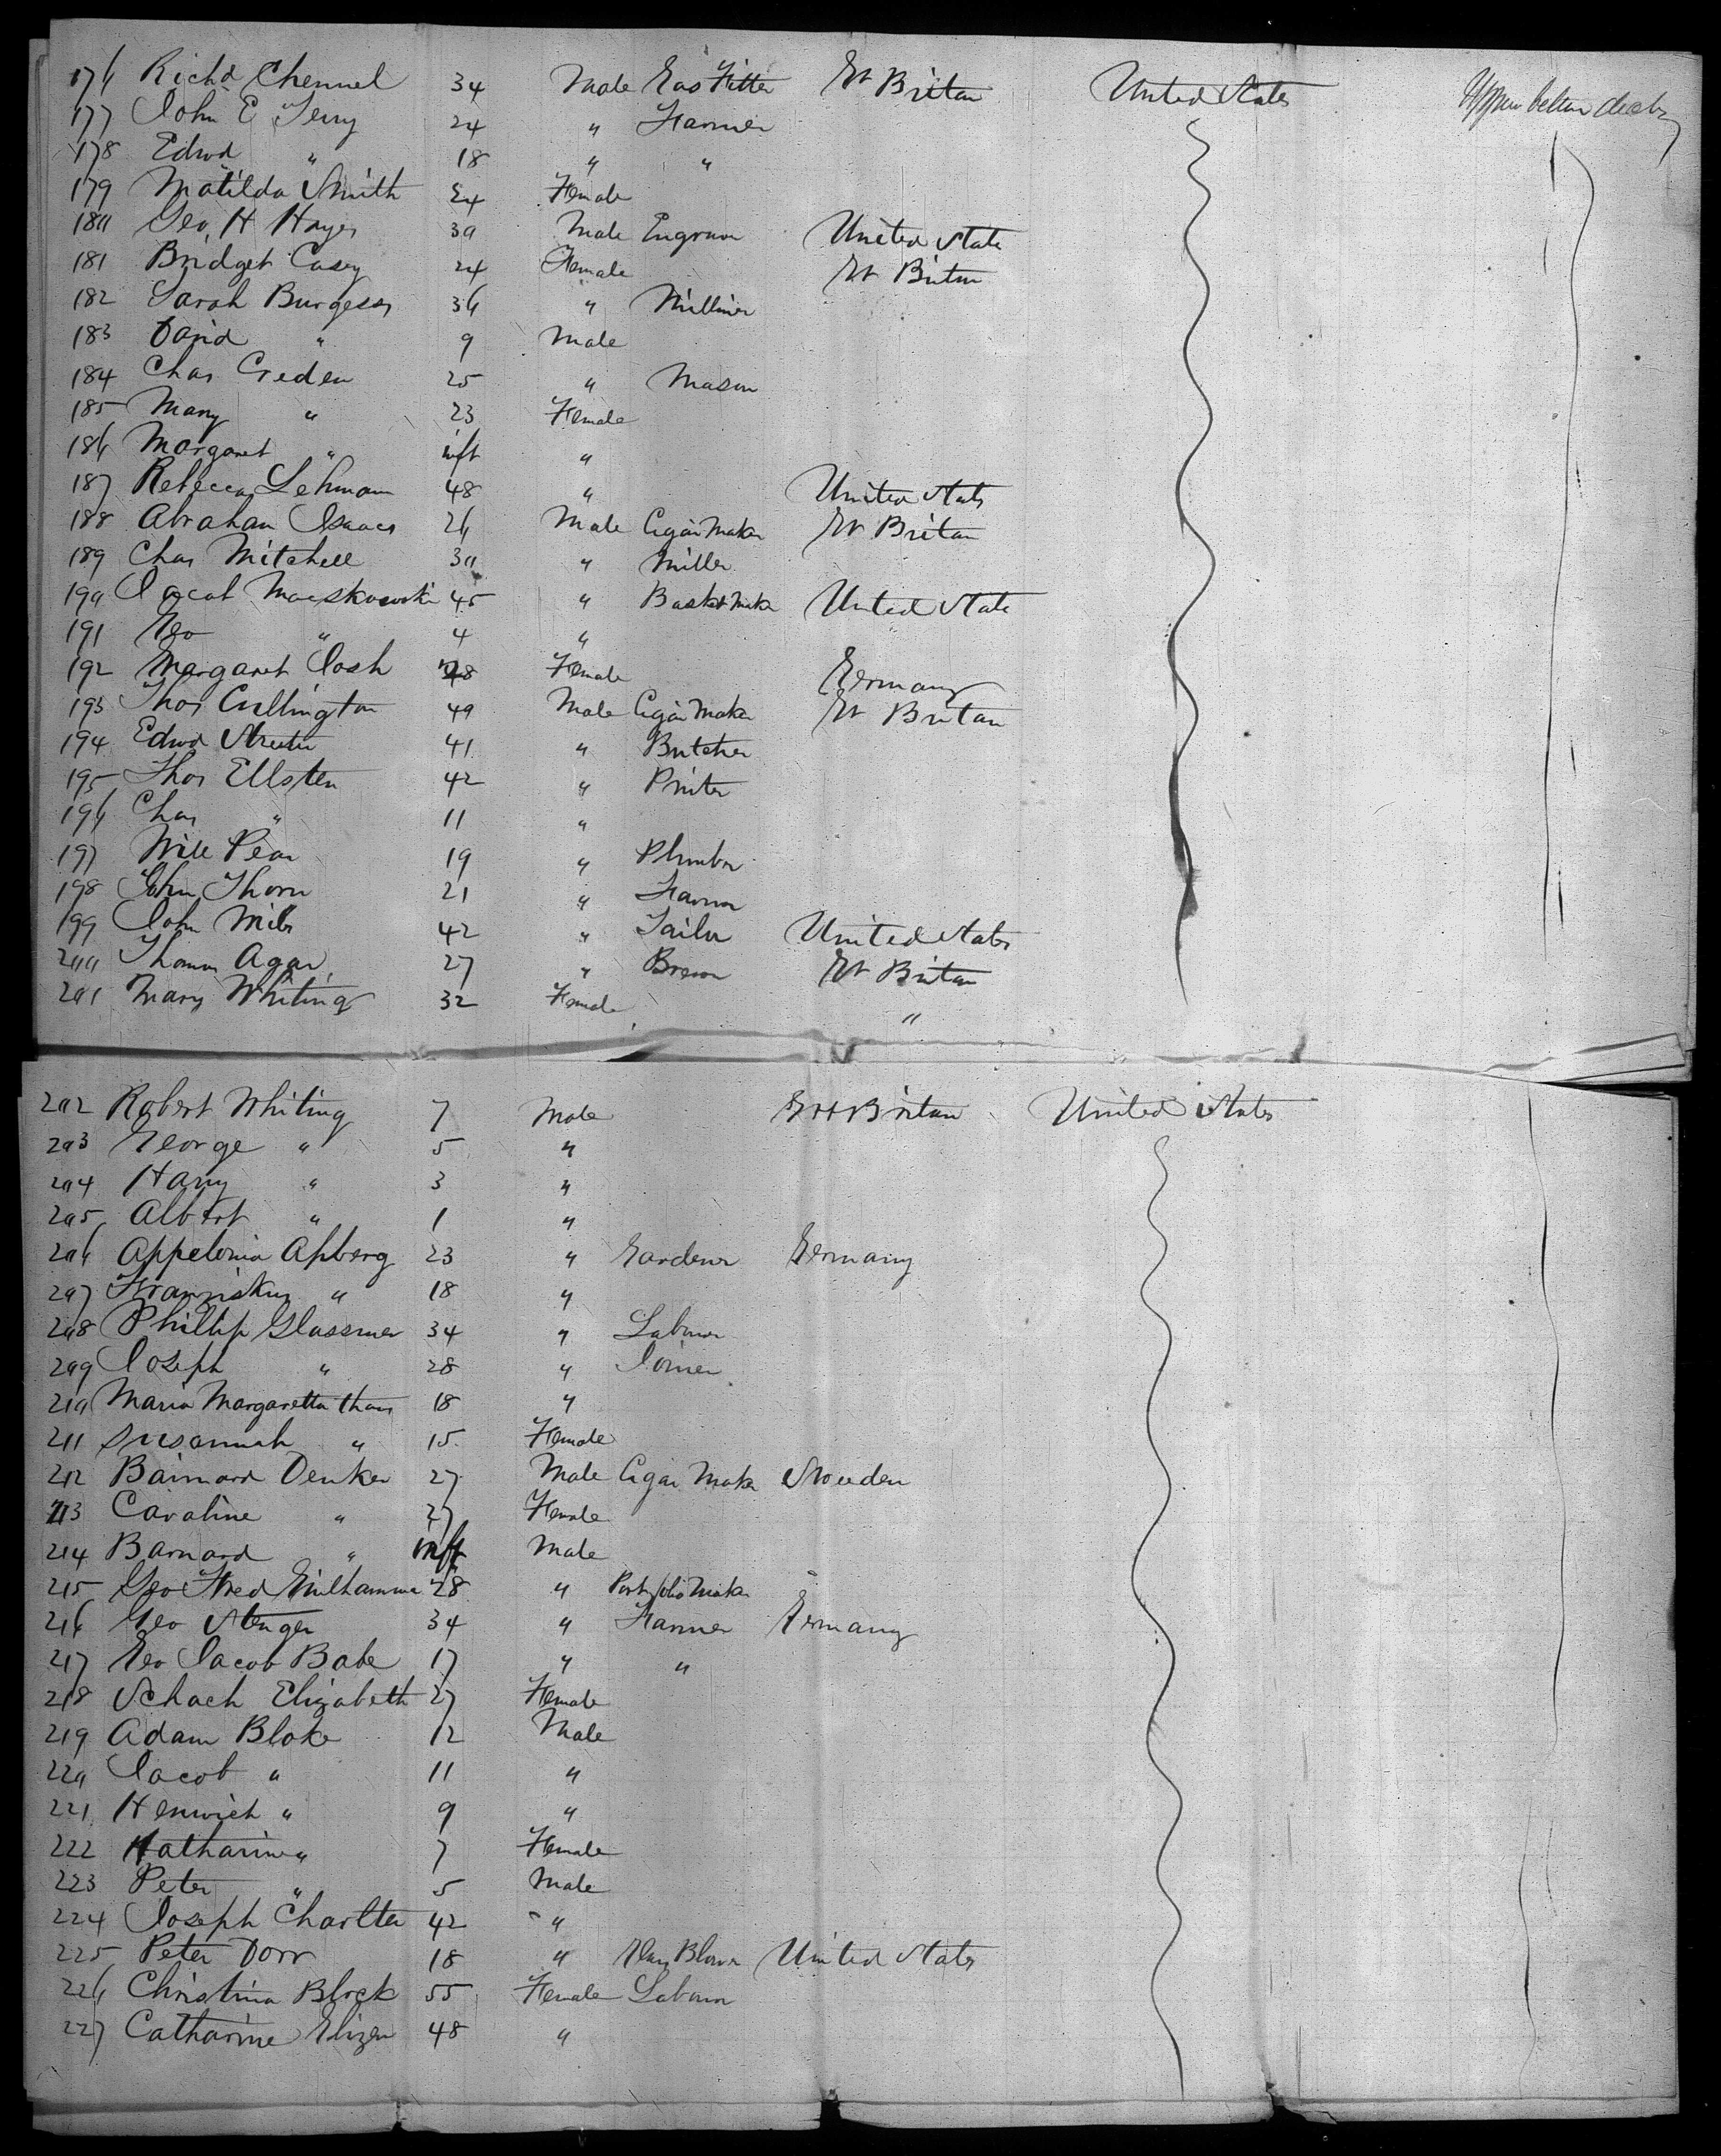 176 Richd Chennel 34 Male Gas Fitter Gt Britan United States Upper between decks
177 John E Terry 24 " Farmer
178 Edwd " 18 " "
179 Matilda Smith 24 Female
180 Geo, H Hayes 30 Male Engraver United State
181 Bridget Casey 24 Female Gt Britan
182 Sarah Burgess 36 " Milliner
183 David " 9 Male
184 Chas Creden 25 " Mason
185 Mary " 23 Female
186 Margaret " inft "
187 Rebecca Lehman 48 " United States
188 Abraham Isaacs 26 Male Cigar Maker Gt Britan
189 Chas Mitchell 30 " Miller
190 Jacob 45 " Basket Maker United State
191 Geo " 4 "
192 Margaret Josh 48 Female Germany
193 Thos Cullington 40 Male Cigar Maker Gt Britan
194 Edwd Streeter 41 " Butcher
195 Thos Ellsten 42 " Printer
196 Chas " 11 "
197 Will Pear 19 " Plumber
198 John Thorn 21 " Farmer
199 John Miles 42 " Tailor United States
200 Thomas Agar 27 " Brewer Gt Britan
201 Mary Whiting 32 Female "
202 Robert Whiting 7 Male Gt Britan United States
203 George " 5 "
204 Harry " 3 "
205 Albert " 1 "
206 Appelonia Apberg 23 " Gardener Germany
207 " 18 "
208 Phillip Glassmer 34 " Labourer
209 Joseph " 28 " Joiner
210 Maria Margaretta Thaus 18 "
211 Susannah " 15 Female
212 Bainard Denker 27 Male Cigar Maker Sweeden
213 Caroline " 27 Female
214 Barnard " inft Male
215 Geo Fred 28 " Portfolio Maker
216 Geo Stenger 34 " Farmer Germany
217 Geo Jacob Babe 17 " "
218 Schach Elizabeth 27 Female
219 Adam Blake 12 Male
220 Jacob " 11 "
221 Henwich " 9 "
222 Katharine " 7 Female
223 Peter " 5 Male
224 Joseph Charlter 42 "
225 Peter Dorr 18 " Glass Blower United States
226 Christina Block 55 Female Labourer
227 Catharine Glizen 48 "